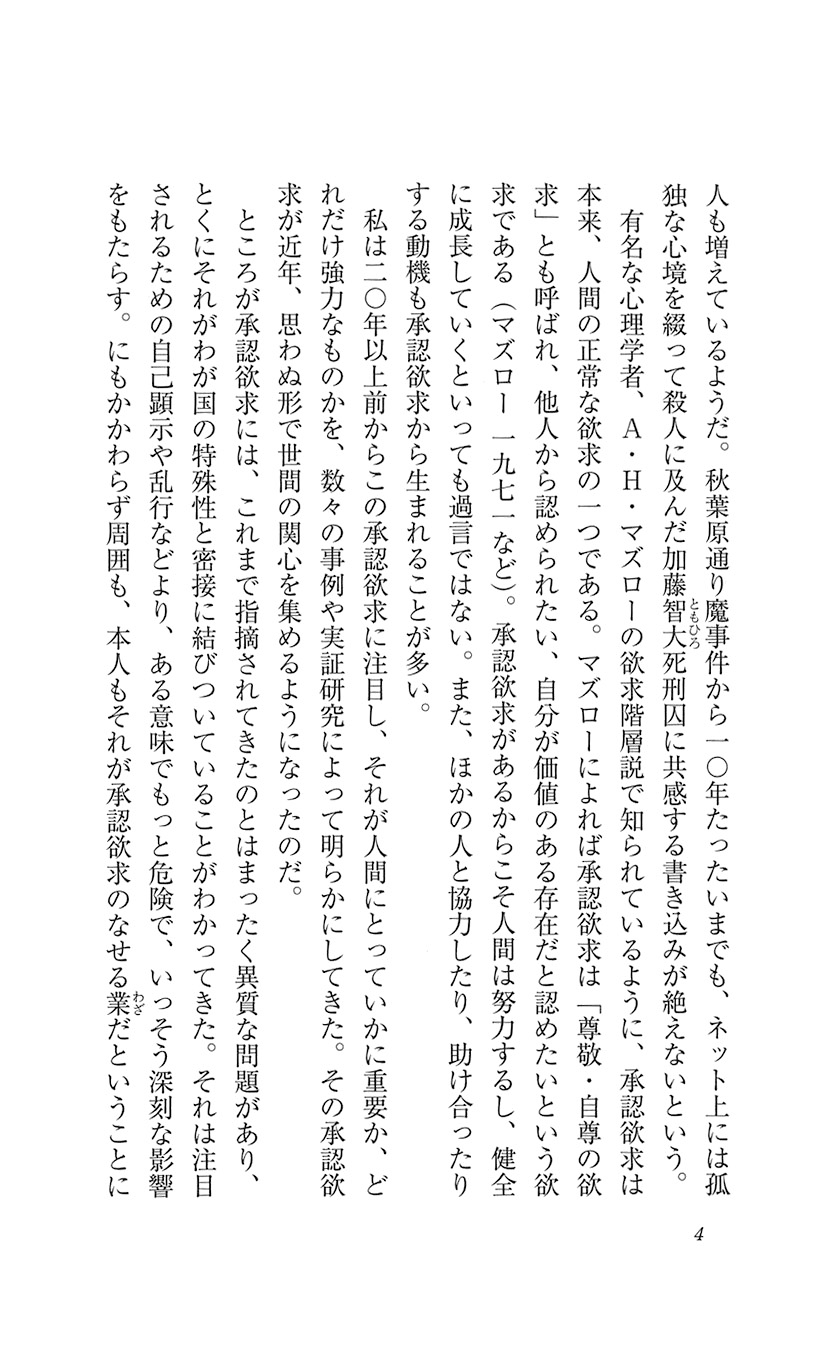 人も増えているようだ。秋葉原通り魔事件から一〇年たったいまでも、ネット上には孤
独な心境を綴って殺人に及んだ加藤智大死刑囚に共感する書き込みが絶えないという。
ともひろ
有名な心理学者、A・H・マズローの欲求階層説で知られているように、承認欲求は
本来、人間の正常な欲求の一つである。マズローによれば承認欲求は「尊敬・自尊の欲
求」とも呼ばれ、他人から認められたい、自分が価値のある存在だと認めたいという欲
求である（マズロー 一九七一など）。承認欲求があるからこそ人間は努力するし、健全
に成長していくといっても過言ではない。また、ほかの人と協力したり、助け合ったり
する動機も承認欲求から生まれることが多い。
私は二〇年以上前からこの承認欲求に注目し、それが人間にとっていかに重要か、ど
れだけ強力なものかを、数々の事例や実証研究によって明らかにしてきた。その承認欲
求が近年、思わぬ形で世間の関心を集めるようになったのだ。
ところが承認欲求には、これまで指摘されてきたのとはまったく異質な問題があり、
とくにそれがわが国の特殊性と密接に結びついていることがわかってきた。それは注目
されるための自己顕示や乱行などより、ある意味でもっと危険で、いっそう深刻な影響
をもたらす。にもかかわらず周囲も、本人もそれが承認欲求のなせる業だということに
わざ
4